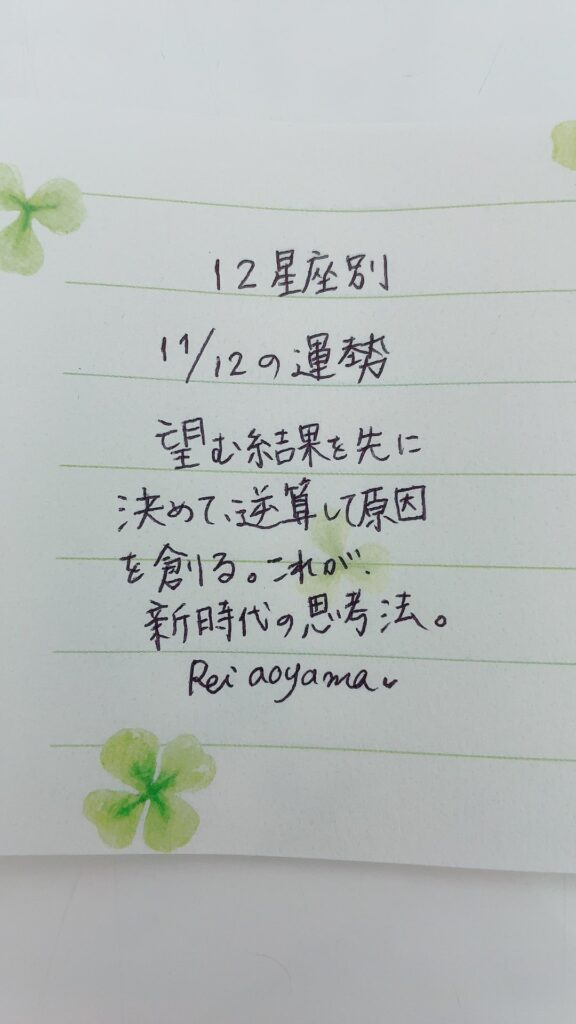 12星座別
11/12の運勢
望む結果を先に
決めて、逆算して原因
を創る。これが、
新時代の思考法。
Rei aoyama